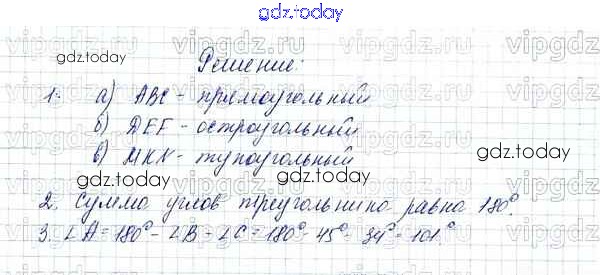 gdz.today
vipgdz.ru vipgdz.ru
gdz.today
Решение:
gdz.today
1. а) ABC - прямоугольный
б) DEF - остроугольный
vipgdz.ru vipgdz.ru
gdz.today
в) MKN - тупоугольный
gdz.today
gdz.today
2. Сумма углов треугольника равна 180°.
3. ∠A = 180° - ∠B - ∠C = 180° - 45° - 34° = 101°
vipgdz.ru vipgdz.ru
gdz.today